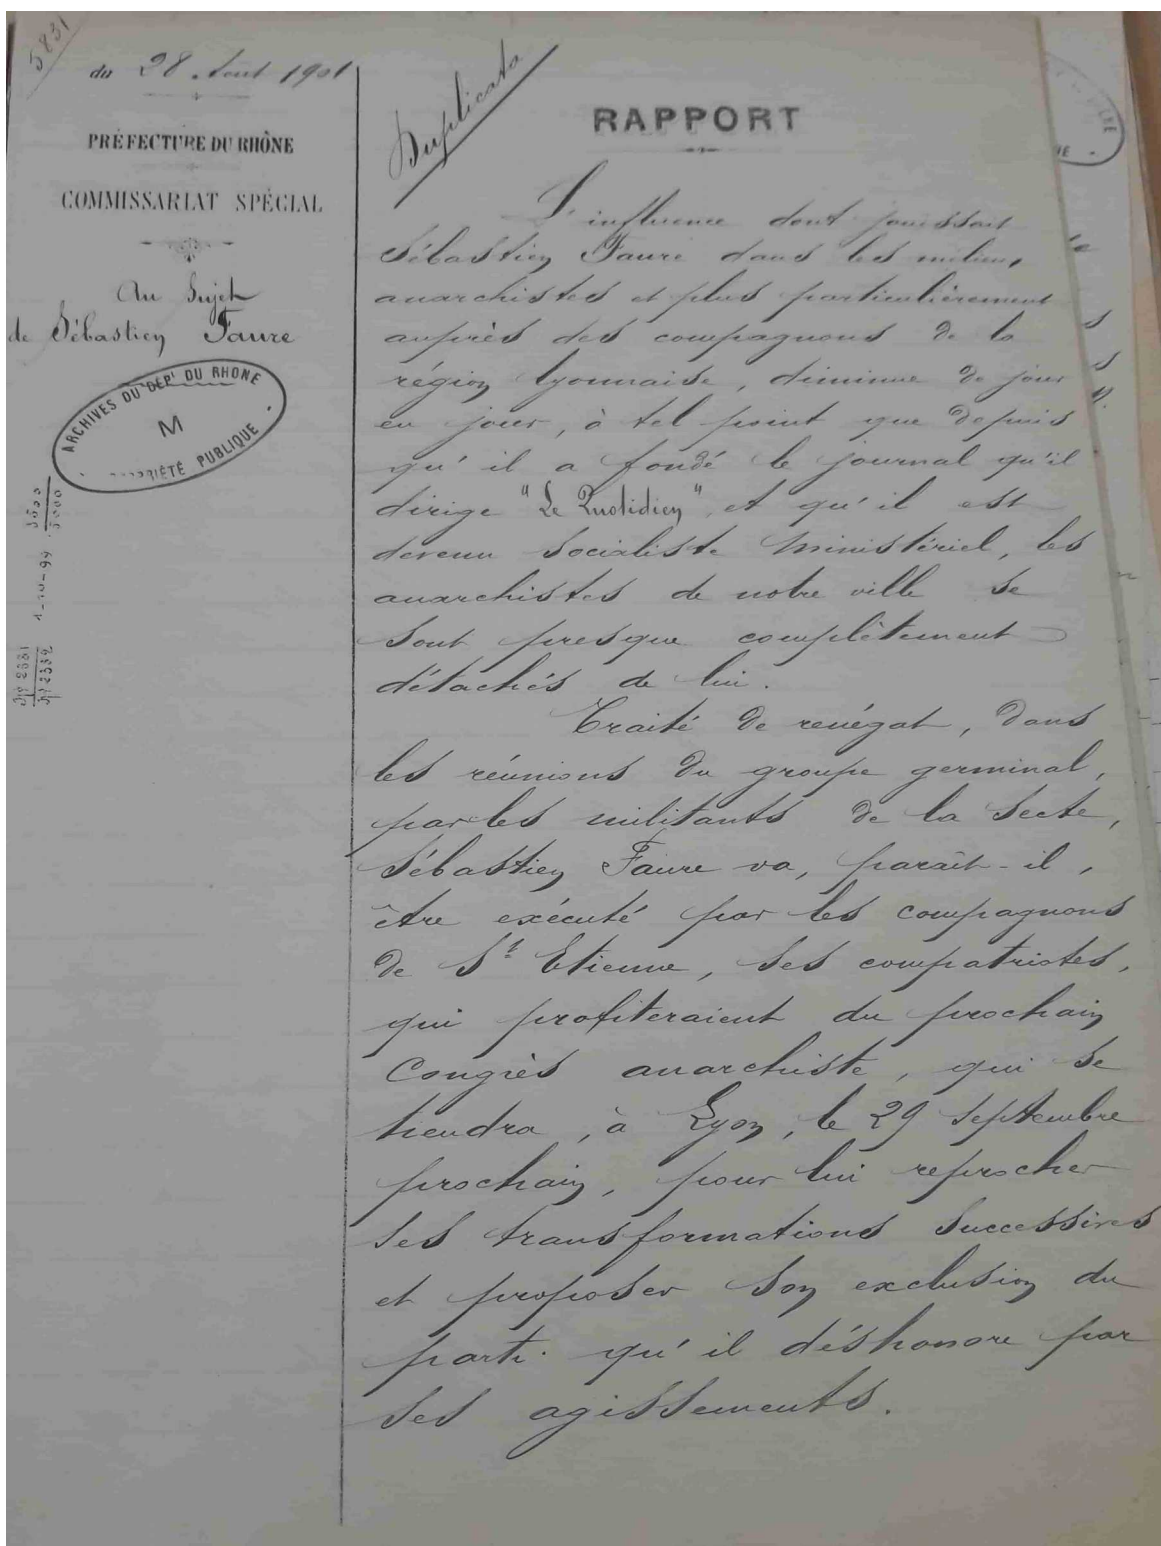 5831
du 28 Août 1901
PRÉFECTURE DU RHÔNE
COMMISSARIAT SPÉCIAL
Au Sujet
de Sébastien Faure
ARCHIVES DU DÉPt DU RHONE
M
PROPRIÉTÉ PUBLIQUE
1-10-99
№ 2331
№ 2332
Duplicata
RAPPORT
L'influence dont jouissait
Sébastien Faure dans les milieux
anarchistes et plus particulièrement
auprès des compagnons de la
région lyonnaise, diminue de jour
en jour, à tel point que depuis
qu'il a fondé le journal qu'il
dirige "Le Quotidien", et qu'il est
devenu socialiste ministériel, les
anarchistes de notre ville se
sont presque complètement
détachés de lui.
Traité de renégat, dans
les réunions du groupe germinal,
par les militants de la secte,
Sébastien Faure va, paraît-il,
être exécuté par les compagnons
de St Etienne, ses compatriotes,
qui profiteraient du prochain
Congrès anarchiste, qui se
tiendra, à Lyon, le 29 septembre
prochain, pour lui reprocher
ses transformations successives
et proposer son exclusion du
parti qu'il déshonore par
ses agissements.